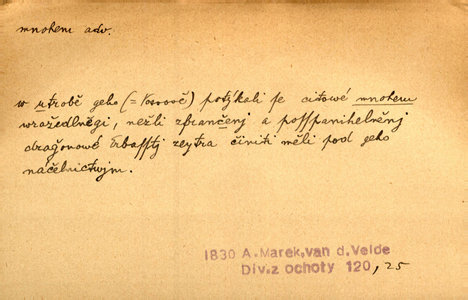 mnohem adv.
w utrobě geho (= Vorově) potýkali se citowé mnohem
wražedlněgi, nežli zfrančenj a posspanihelněnj
dragonowé Erbasstj zeytra činiti měli pod geho
náčelnictwjm.
1830 A. Marek, van d. Velde
Div. z ochoty 120, 25